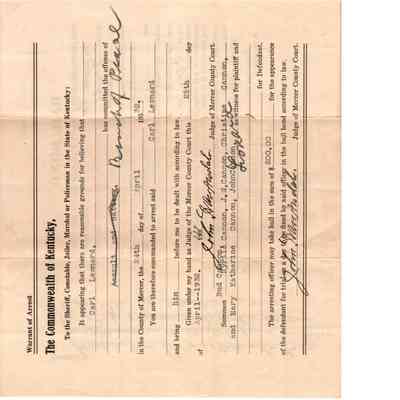 Warrant of Arrest
The Commonwealth of Kentucky,
To the Sheriff, Constable, Jailer, Marshal or Policeman in the State of Kentucky:
It appearing that there are reasonable grounds for believing that
Carl Leonard. has committed the offense of
Breach of Peace
in the County of Mercer, the 24th day of April 1932.
You are therefore commanded to arrest said Carl Leonard
and bring him before me to be dealt with according to law.
Given under my hand as Judge of the Mercer County Court this 25th day
of April--1932.
Judge of Mercer County Court.
Summon Bud Cannon, J.S. Cannon, Christine Cannon,
and Mary Katherine Cannon, John witness for plaintiff and
for Defendant.
The arresting officer may take bail in the sum of $ 200.00 for the appearance
of the defendant for trial by said officer in the bail bond according to law.
Judge of Mercer County Court.